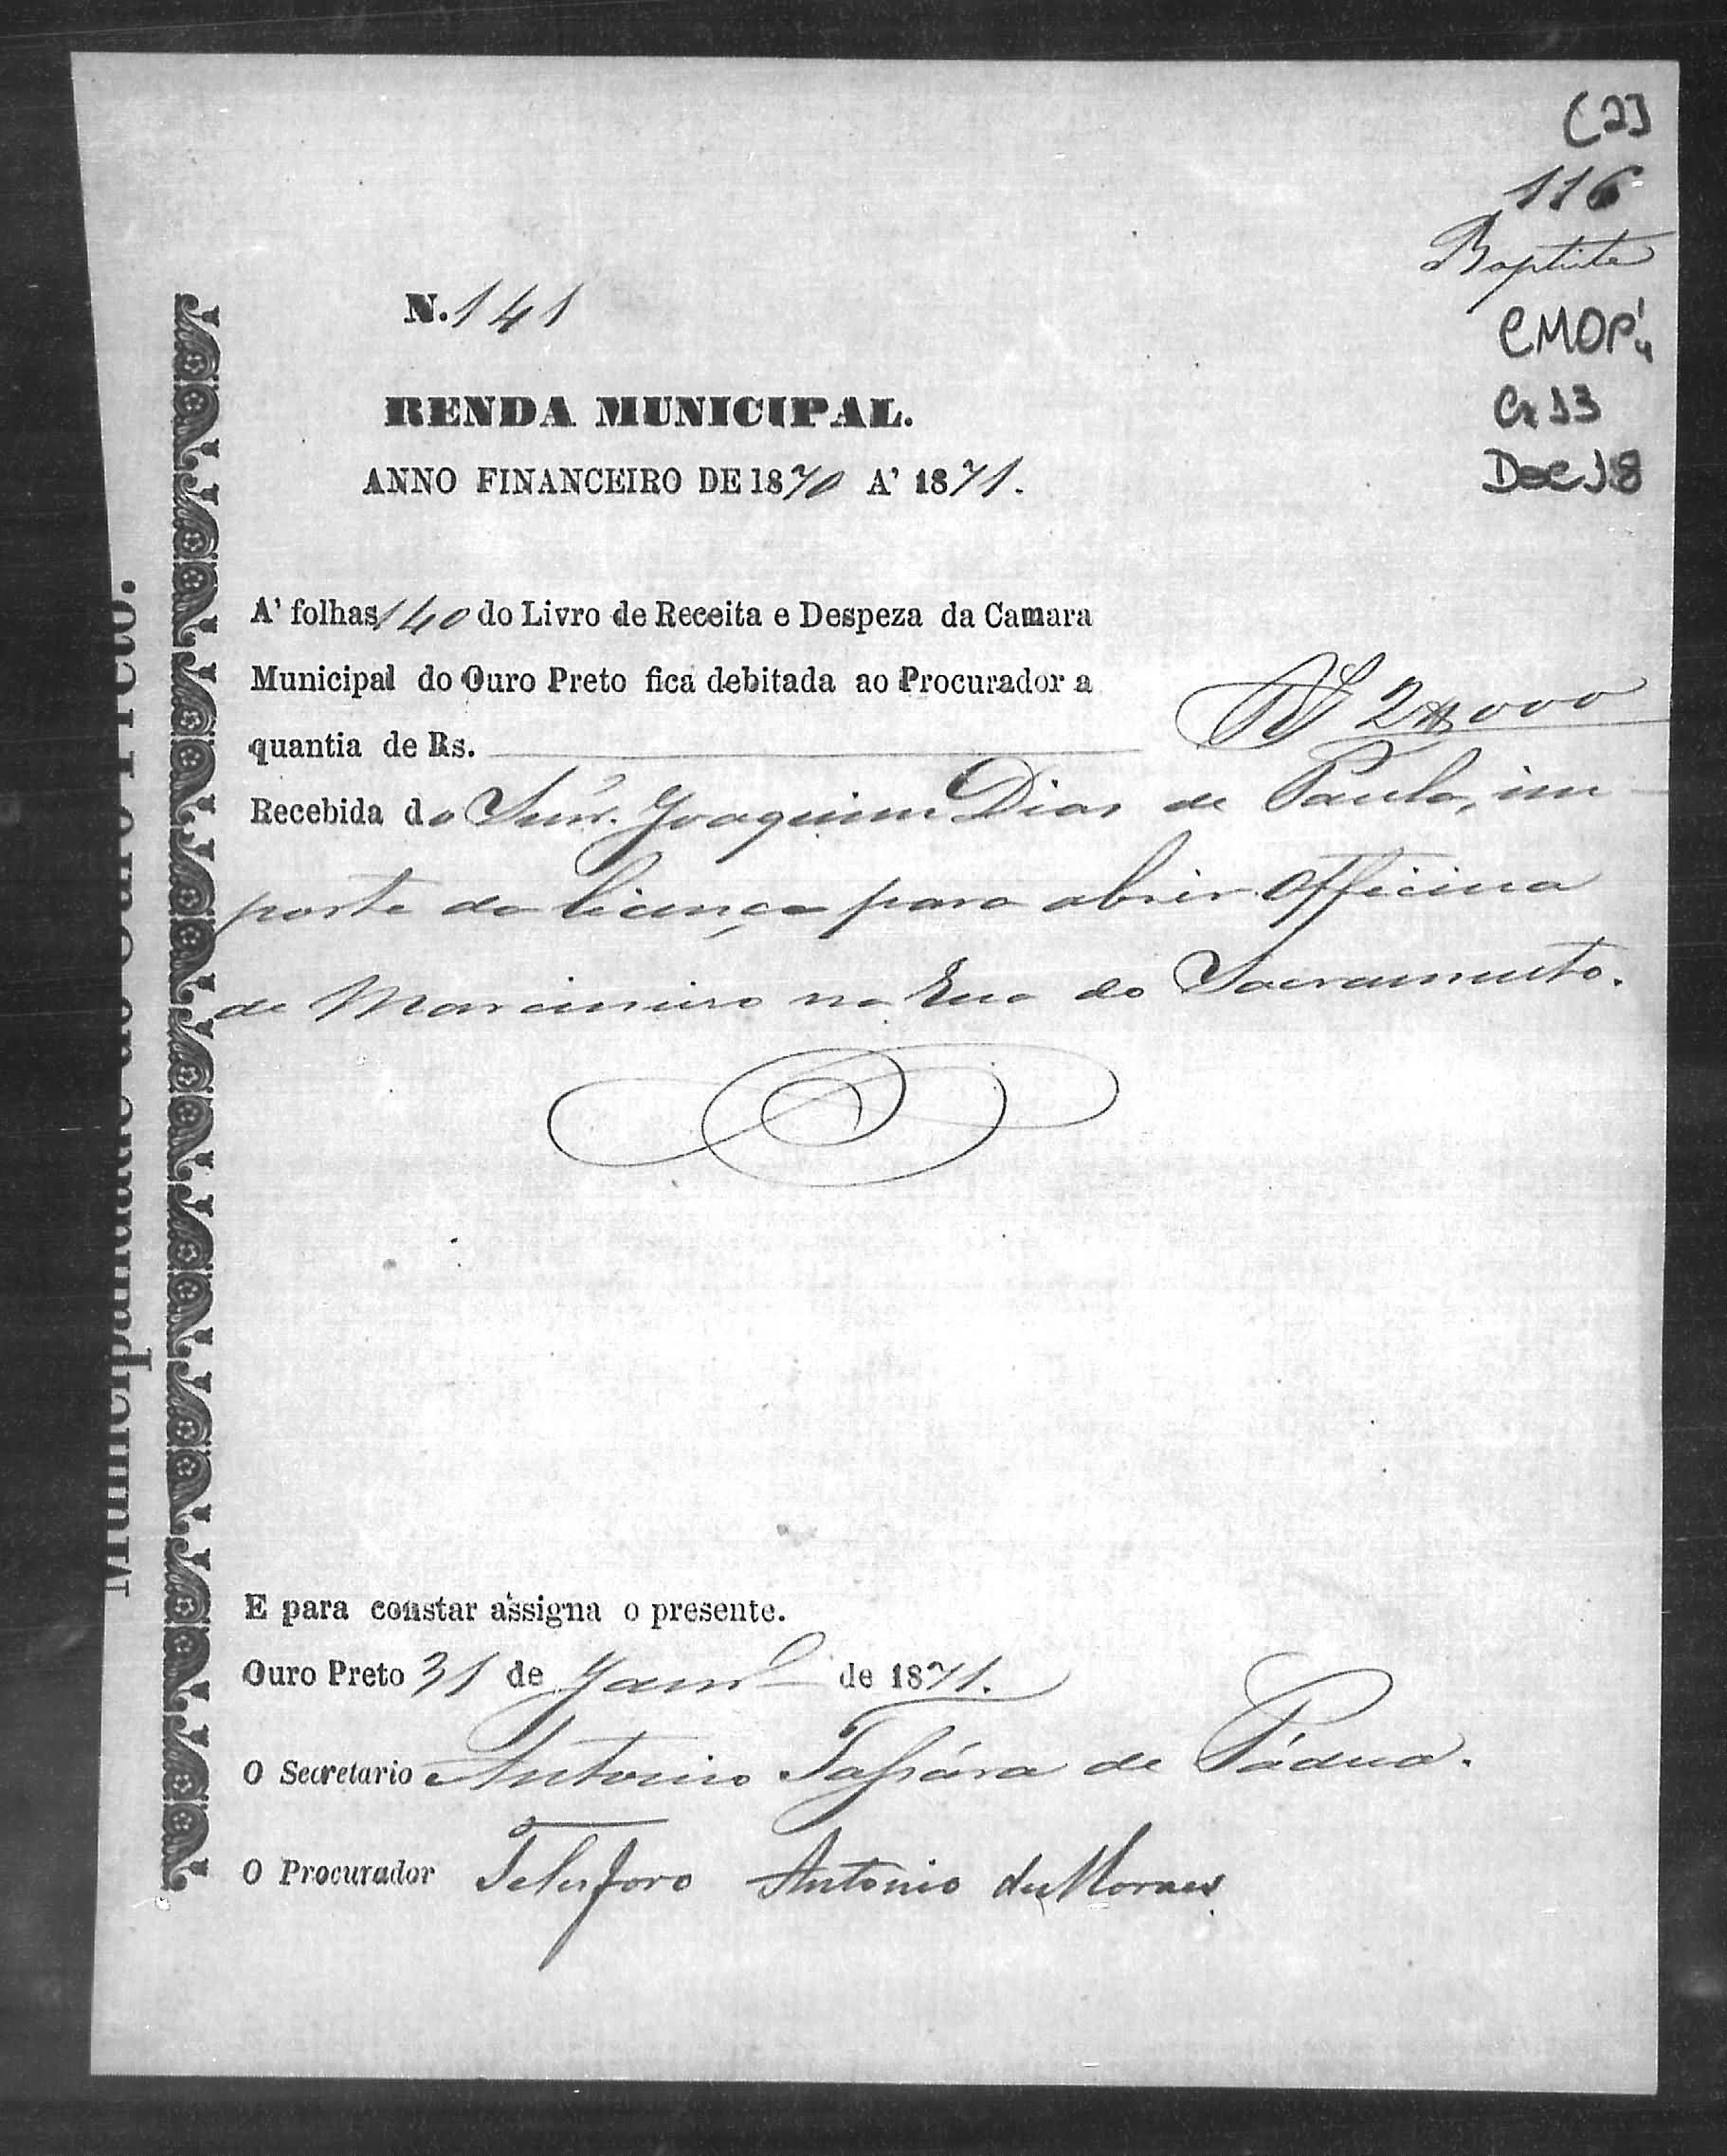 [2]
116
Baptista
CMOP¹4
Cx 13
Doc 18
N. 141
RENDA MUNICIPAL.
ANNO FINANCEIRO DE 1870 A' 1871.
A' folhas 140 do Livro de Receita e Despeza da Camara
Municipal do Ouro Preto fica debitada ao Procurador a
quantia de Rs. R$ 2$000
Recebida do Snr. Joaquim Dias de Paula, im-
porte da licença para abrir Officina
de Marcineiro na Rua do Sacramento.
E para constar assigna o presente.
Ouro Preto 31 de Janrº de 1871.
O Secretario Antonio Tassára de Pádua.
O Procurador Telesforo Antonio de Moraes
Municipalidade do Ouro Preto.